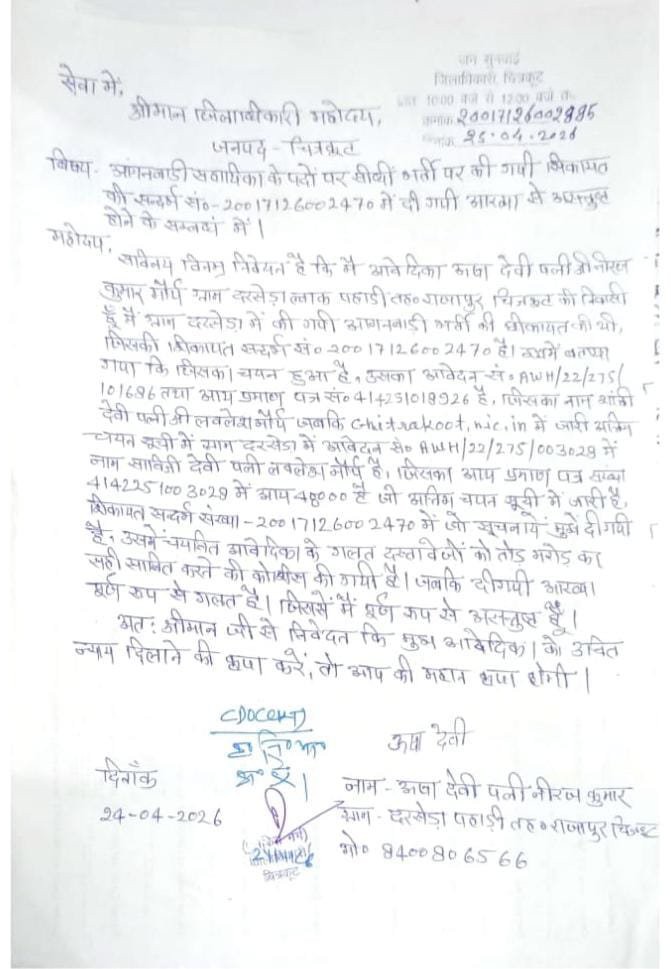 जन सुनवाई
जिलाधिकारी, चित्रकूट
10:00 बजे से 12:00 बजे तक
क्रमांक 20017126002985
दिनांक 25.04.2026
सेवा में,
श्रीमान जिलाधिकारी महोदय,
जनपद - चित्रकूट
विषय- आंगनवाडी सहायिका के पदों पर सीधी भर्ती पर की गयी शिकायत
की सन्दर्भ सं०-20017126002470 में दी गयी आख्या से असन्तुष्ट
होने के सम्बन्ध में |
महोदय,
सविनय विनम्र निवेदन है कि मै आवेदिका ऊषा देवी पत्नी श्री नीरज
कुमार मौर्य ग्राम दरसेडा ब्लाक पहाडी तह० राजापुर चित्रकूट की निवासी
हूँ मै ग्राम दरसेडा में की गयी आंगनवाडी भर्ती की शीकायत की थी,
जिसकी शिकायत सन्दर्भ सं०-20017126002470 है। उसमें बताया
गया कि जिसका चयन हुआ है, उसका आवेदन सं० AWH/22/275/
101686 तथा आय प्रमाण पत्र सं० 414251018926 है, जिसका नाम
देवी पत्नी श्री लवलेश मौर्य जबकि Chitrakoot.nic.in में जारी अन्तिम
चयन सूची में ग्राम दरसेडा में आवेदन सं० AWH/22/275/003029 में
नाम सावित्री देवी पत्नी लवलेश मौर्य है, जिसका आय प्रमाण पत्र संख्या
4142251003029 में आय 48000 है जो अन्तिम चयन सूची में जारी है,
शिकायत सन्दर्भ संख्या-20017126002470 में जो सूचनायें मुझे दी गयी
है, उसमें चयनित आवेदिका के गलत दस्तावेजों को तोड मरोड कर
सही साबित करने की कोशीस की गयी है। जबकि दी गयी आख्या
पूर्ण रूप से गलत है। जिससे मैं पूर्ण रूप से असन्तुष्ट हूँ।
अत: श्रीमान जी से निवेदन कि मुझ आवेदिका को उचित
न्याय दिलाने की कृपा करें, तो आप की महान कृपा होगी |
ऊषा देवी
दिनाँक
24-04-2026
नाम - ऊषा देवी पत्नी नीरज कुमार
ग्राम - दरसेडा पहाडी तह० राजापुर चित्रकूट
मो० 8400806566
चित्रकूट